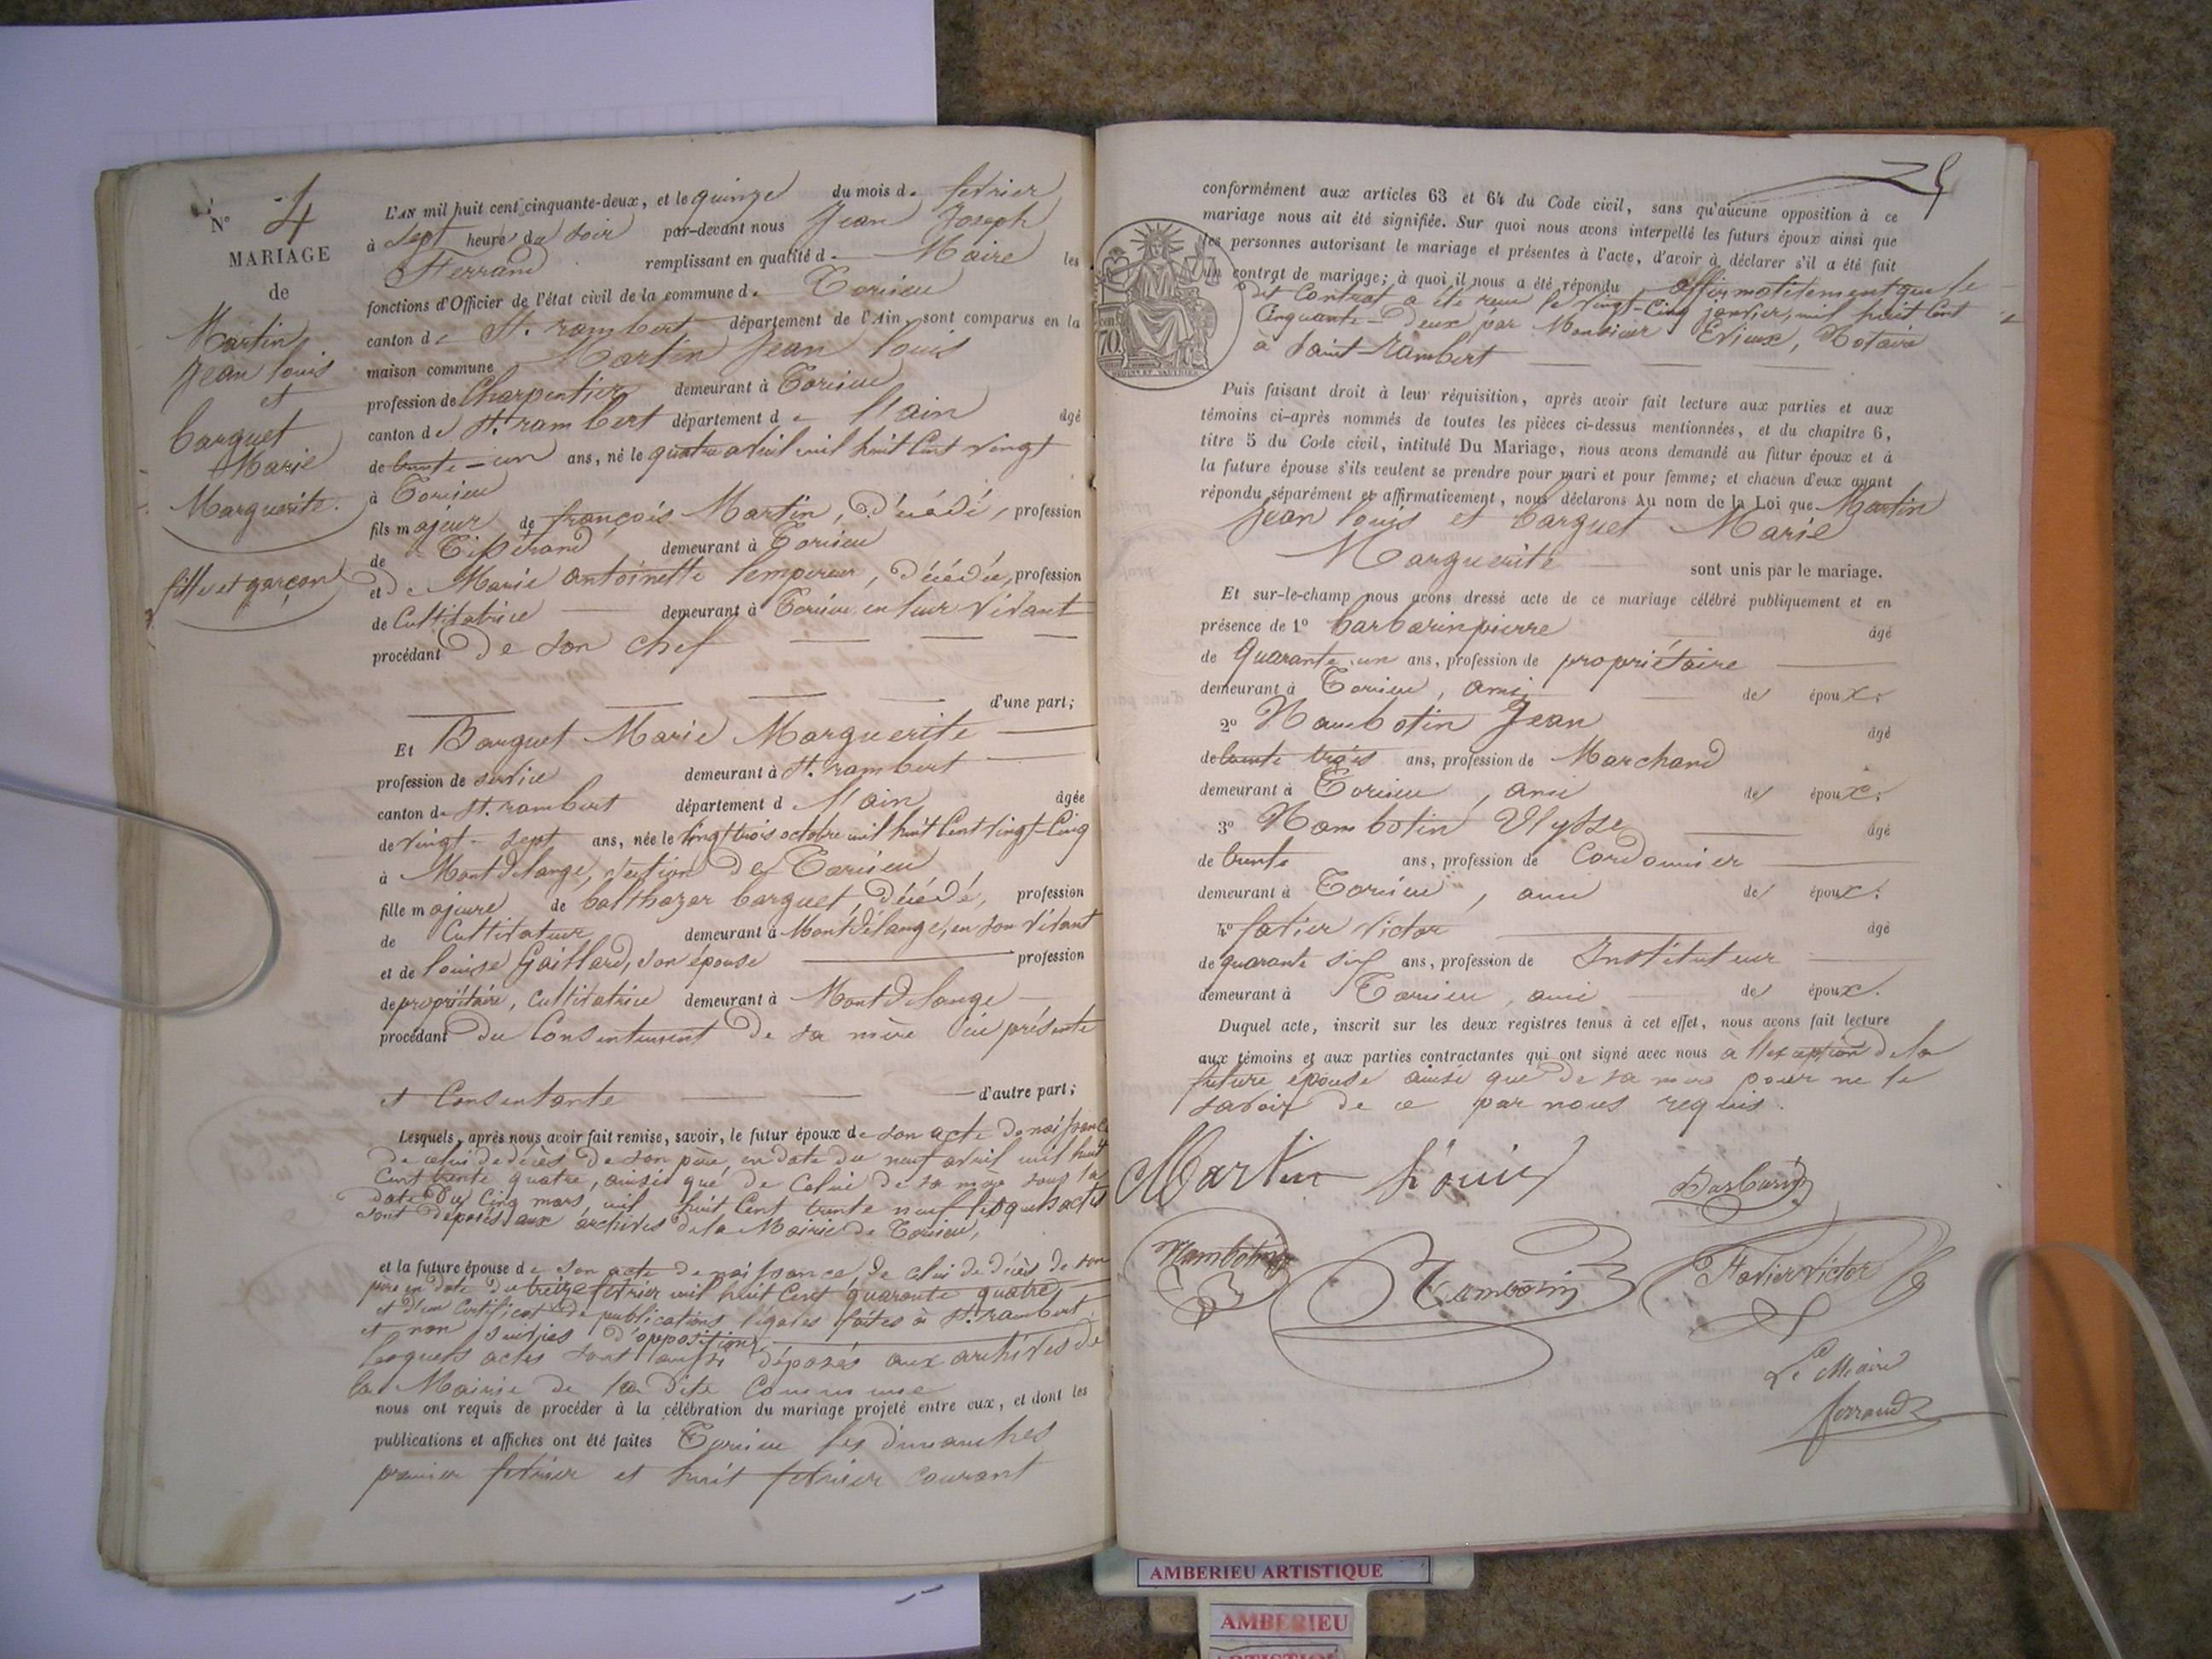 N° 4
MARIAGE
de
Martin
Jean louis
et
barquet
Marie
Marguerite.
fille et garçon
L'AN mil huit cent cinquante-deux, et le quinze du mois de fevrier
à sept heures du soir par-devant nous Jean Joseph
Ferrand remplissant en qualité de Maire les
fonctions d'Officier de l'état civil de la commune de Torcieu
canton de St. rambert département de l'Ain, sont comparus en la
maison commune Martin Jean louis
profession de Charpentier demeurant à Torcieu
canton de St. rambert département de l'ain âgé
de trente-un ans, né le quatre avril mil huit Cent vingt
à Torcieu
fils majeur de françois Martin, Décédé, profession
de Tisserand demeurant à Torcieu
et de Marie antoinette lempereur, Décédée, profession
de Cultivatrice demeurant à Torcieu en leur vivant
procédant de son chef
d'une part;
Et Barquet Marie Marguerite
profession de service demeurant à St. rambert
canton de St. rambert département d l'ain âgée
de vingt-sept ans, née le vingt trois octobre mil huit Cent vingt-Cinq
à Montdelange, section de Torcieu
fille majeure de balthazar barquet, Décédé, profession
de Cultivateur demeurant à Montdélange, en son vivant
et de louise Gaillard, son épouse profession
de propriétaire, Cultivatrice demeurant à Montdelange
procédant du Consentement de sa mère ici présente
et Consentante d'autre part;
Lesquels, après nous avoir fait remise, savoir, le futur époux de son acte de naissance
de celui de décès de son père, en date du neuf avril mil huit
Cent trente quatre, ainsi que de Celui de sa mère sous la
date du Cinq mars, mil huit Cent trente neuf lesquels actes
sont déposés aux archives de la Mairie de Torcieu,
et la future épouse de son acte de naissance, de celui de décès de son
père en date du treize fevrier mil huit Cent quarante quatre
et d'un Certificat de publications légales faites à St. rambert
et non suivies d'opposition,
lesquels actes sont aussi déposés aux archives de
la Mairie de la dite Commune
nous ont requis de procéder à la célébration du mariage projeté entre eux, et dont les
publications et affiches ont été faites Torcieu les dimanches
premier fevrier et huit fevrier courant
5
conformément aux articles 63 et 64 du Code civil, sans qu'aucune opposition à ce
mariage nous ait été signifiée. Sur quoi nous avons interpellé les futurs époux ainsi que
les personnes autorisant le mariage et présentes à l'acte, d'avoir à déclarer s'il a été fait
un contrat de mariage; à quoi il nous a été répondu affirmativement que le
dit Contrat a été reçu le vingt-Cinq janvier, mil huit Cent
Cinquante-Deux par Monsieur Evieux, Notaire
à Saint-Rambert
Puis faisant droit à leur réquisition, après avoir fait lecture aux parties et aux
témoins ci-après nommés de toutes les pièces ci-dessus mentionnées, et du chapitre 6,
titre 5 du Code civil, intitulé Du Mariage, nous avons demandé au futur époux et à
la future épouse s'ils veulent se prendre pour mari et pour femme; et chacun d'eux ayant
répondu séparément et affirmativement, nous déclarons Au nom de la Loi que Martin
Jean louis et barquet Marie
Marguerite sont unis par le mariage.
Et sur-le-champ nous avons dressé acte de ce mariage célébré publiquement et en
présence de 1° barbarin pierre âgé
de quarante un ans, profession de propriétaire
demeurant à Torcieu, ami de époux.
2° Nambotin Jean âgé
de trente trois ans, profession de Marchand
demeurant à Torcieu, ami de époux.
3° Nambotin Ulysse âgé
de trente ans, profession de Cordonnier
demeurant à Torcieu, ami de époux.
4° favier victor âgé
de quarante six ans, profession de Instituteur
demeurant à Torcieu, ami de époux.
Duquel acte, inscrit sur les deux registres tenus à cet effet, nous avons fait lecture
aux témoins et aux parties contractantes qui ont signé avec nous à l'exception de la
future épouse ainsi que de sa mère pour ne le
savoir de ce par nous requis.
Martin Louis
Barbarin
Nambotin
Nambotin
Favier Victor
Le Maire
ferrand
AMBERIEU ARTISTIQUE
AMBERIEU
ARTISTIQUE